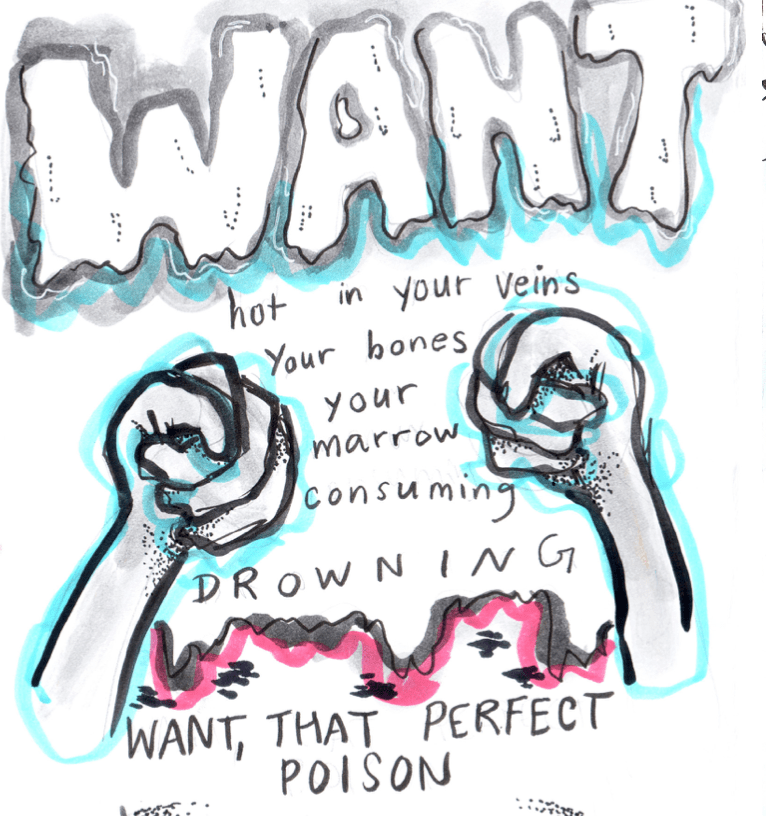 WANT
hot in your veins
Your bones
your
marrow
consuming
DROWNING
WANT, THAT PERFECT
POISON